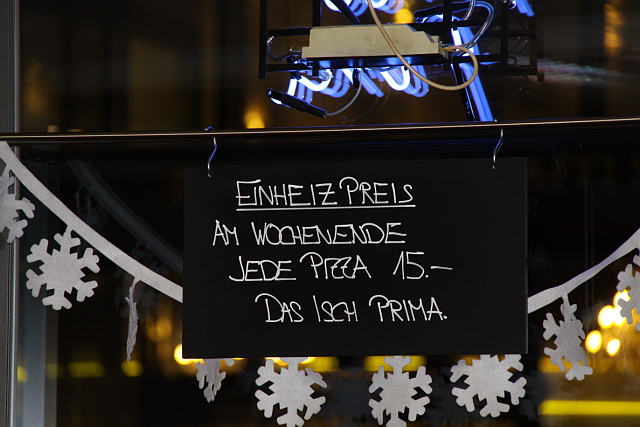 EINHEIZPREIS
AM WOCHENENDE
JEDE PIZZA 15.–
DAS ISCH PRIMA.